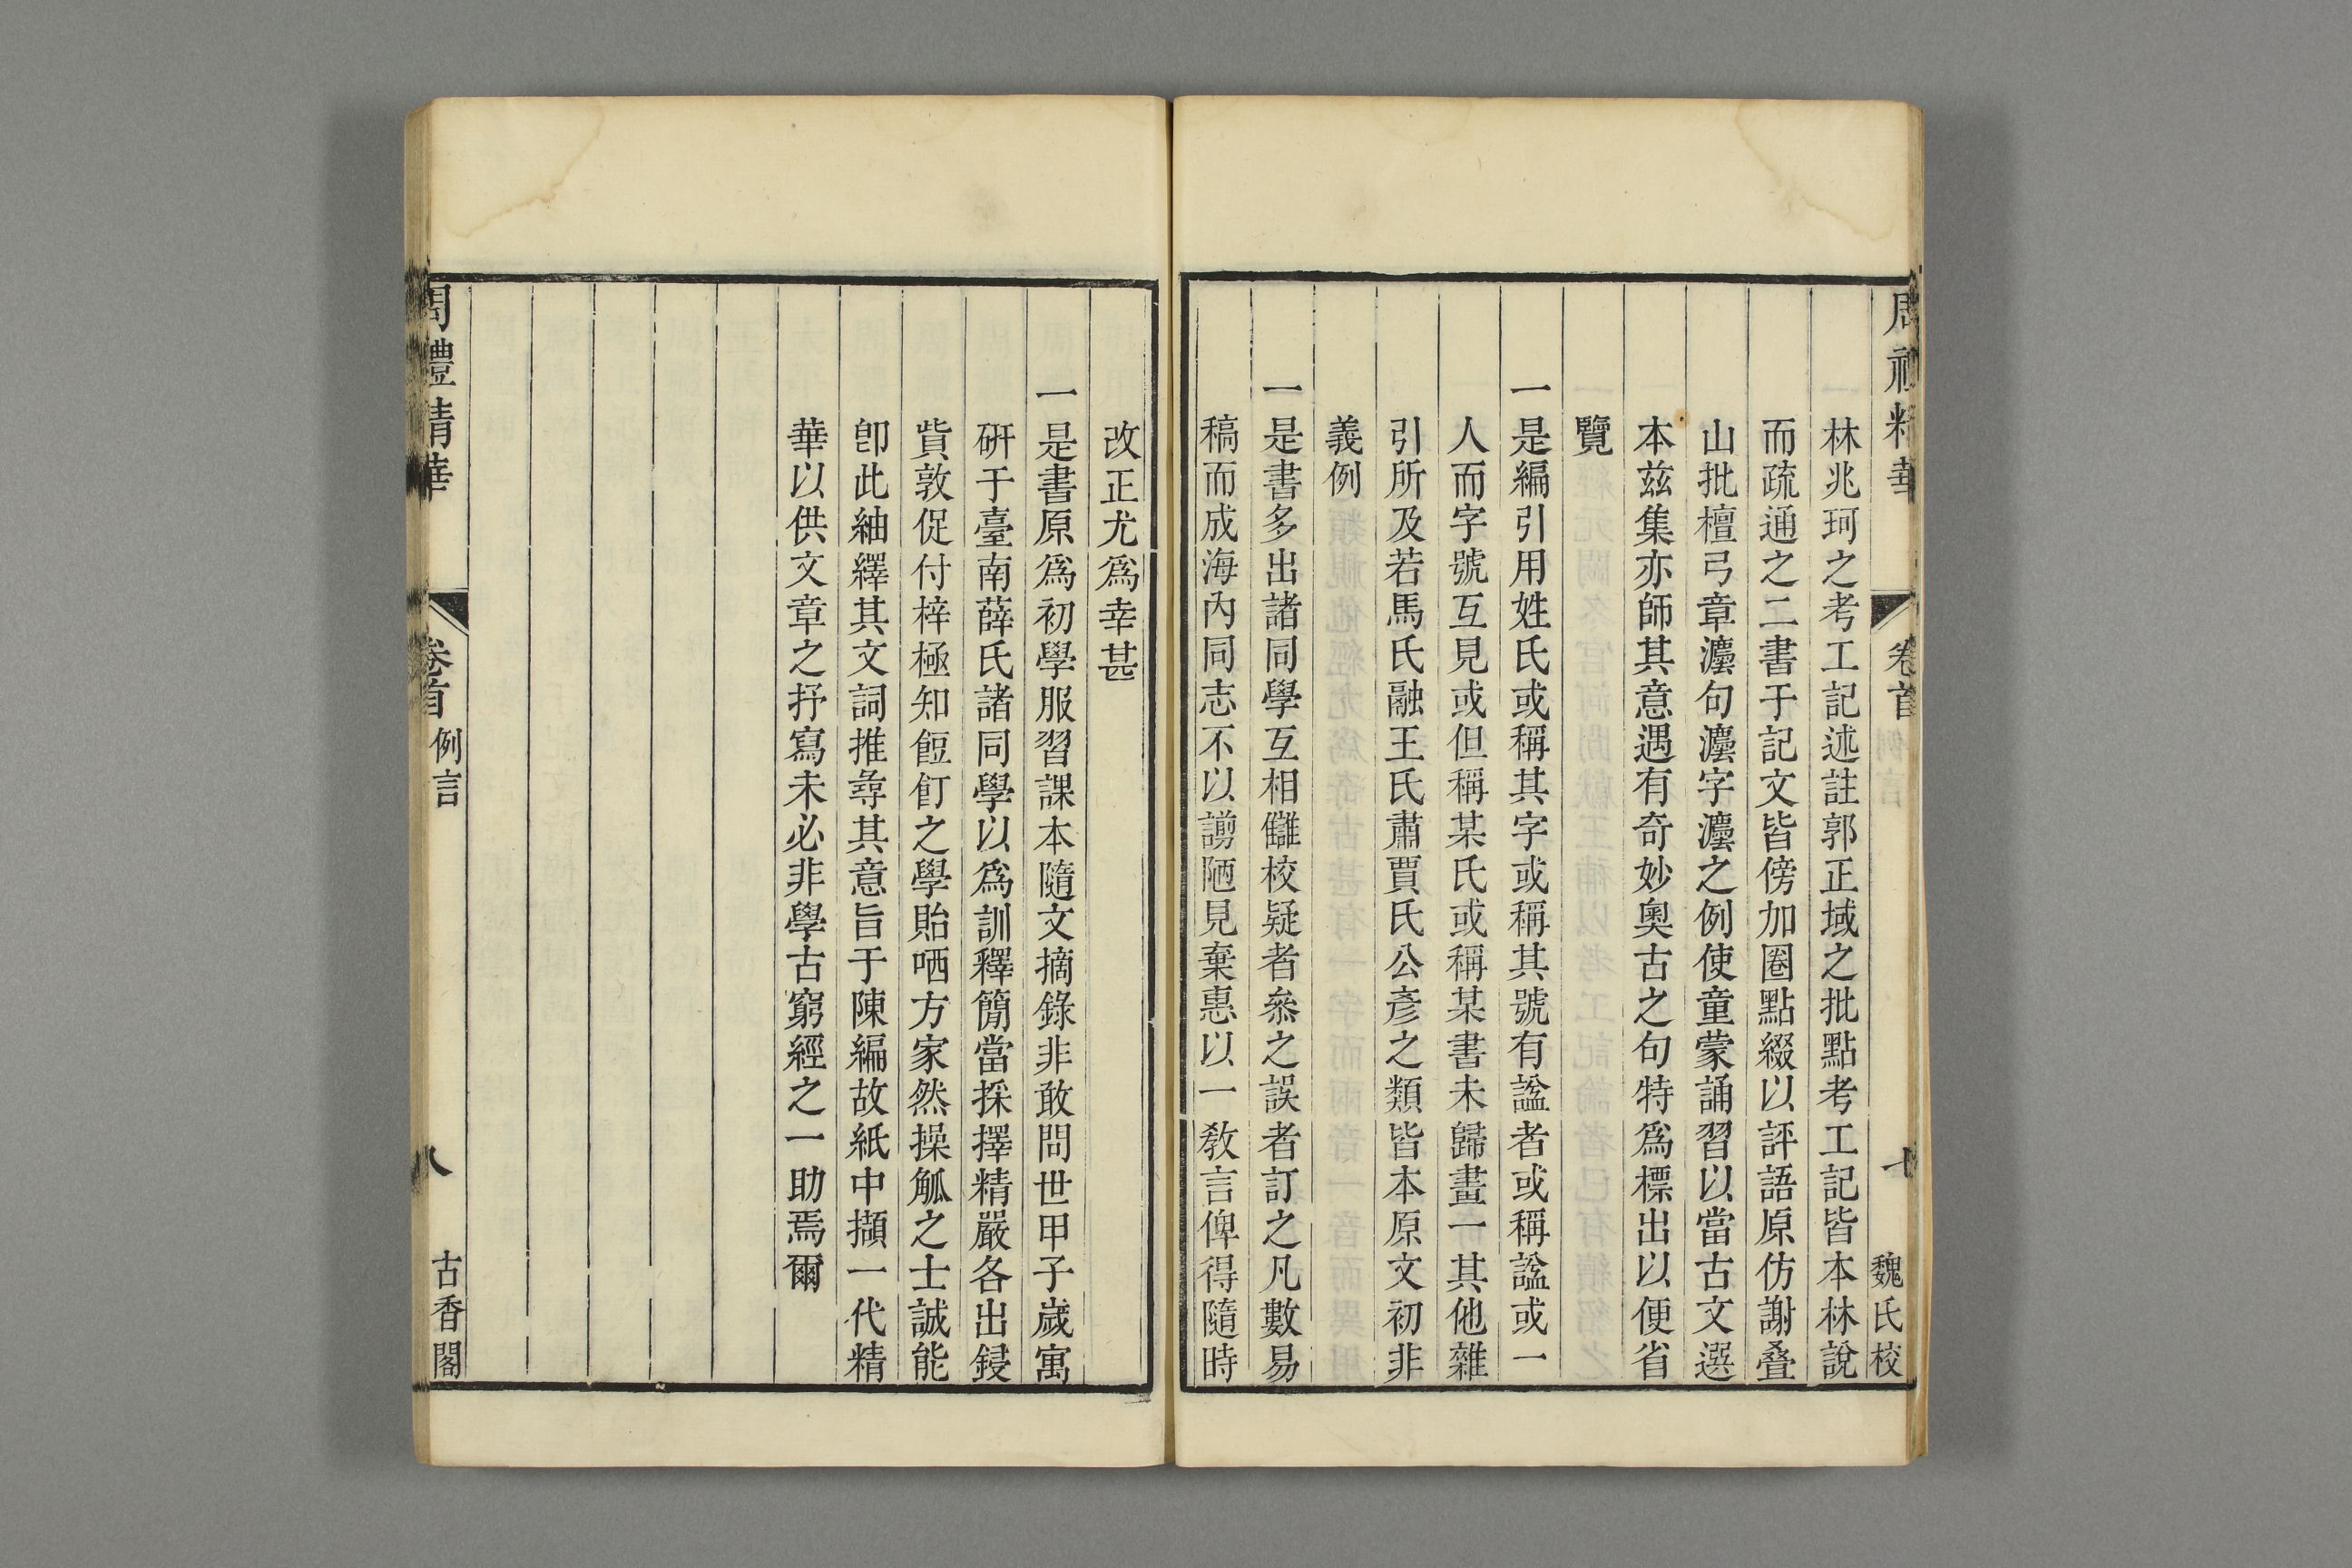 周禮精華
卷首
七
魏氏校
林兆珂之考工記述註郭正域之批點考工記皆本林說
而疏通之二書于記文皆傍加圈點綴以評語原仿謝疊
山批檀弓章灋句灋字灋之例使童蒙誦習以當古文選
本茲集亦師其意遇有奇妙奧古之句特爲標出以便省
覽
一是編引用姓氏或稱其字或稱其號有諡者或稱諡或一
人而字號互見或但稱某氏或稱某書未歸畫一其他雜
引所及若馬氏融王氏肅賈氏公彥之類皆本原文初非
義例
一是書多出諸同學互相讎校疑者叅之誤者訂之凡數易
稿而成海內同志不以譾陋見棄惠以一教言俾得隨時
改正尤爲幸甚
一是書原爲初學服習課本隨文摘錄非敢問世甲子歲寓
硏于臺南薛氏諸同學以爲訓釋簡當採擇精嚴各出鋟
貲敦促付梓極知餖飣之學貽哂方家然操觚之士誠能
卽此紬繹其文詞推尋其意旨于陳編故紙中擷一代精
華以供文章之抒寫未必非學古窮經之一助焉爾
周禮精華
卷首
例言
八
古香閣